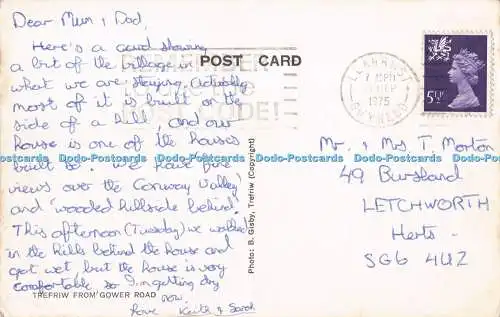 Dear Mum & Dad,
Here's a card showing
a bit of the village in
what we are staying. Actually
most of it is built on the
side of a hill, and our
house is one of the houses
built so. We have fine
views over the Conway Valley
and wooded hillside behind.
This afternoon (Tuesday) we walked
in the hills behind the house and
got wet, but the house is very
comfortable so I'm getting dry
now.
Love Keith & Sarah
TREFRIW FROM GOWER ROAD
POST CARD
REMEMBER
CODE!
Photo: B. Gisby, Trefriw (Copyright)
7 PM
SEP
1975
GWYNEDD
5½P
Mr. & Mrs T. Morton
49 Bursland
LETCHWORTH
Herts.
SG6 4UZ
Dodo-Postcards Dodo-Postcards Dodo-Postcards Dodo-Postcards Dodo-Postcards Dodo-Postcards Dodo-Postcards